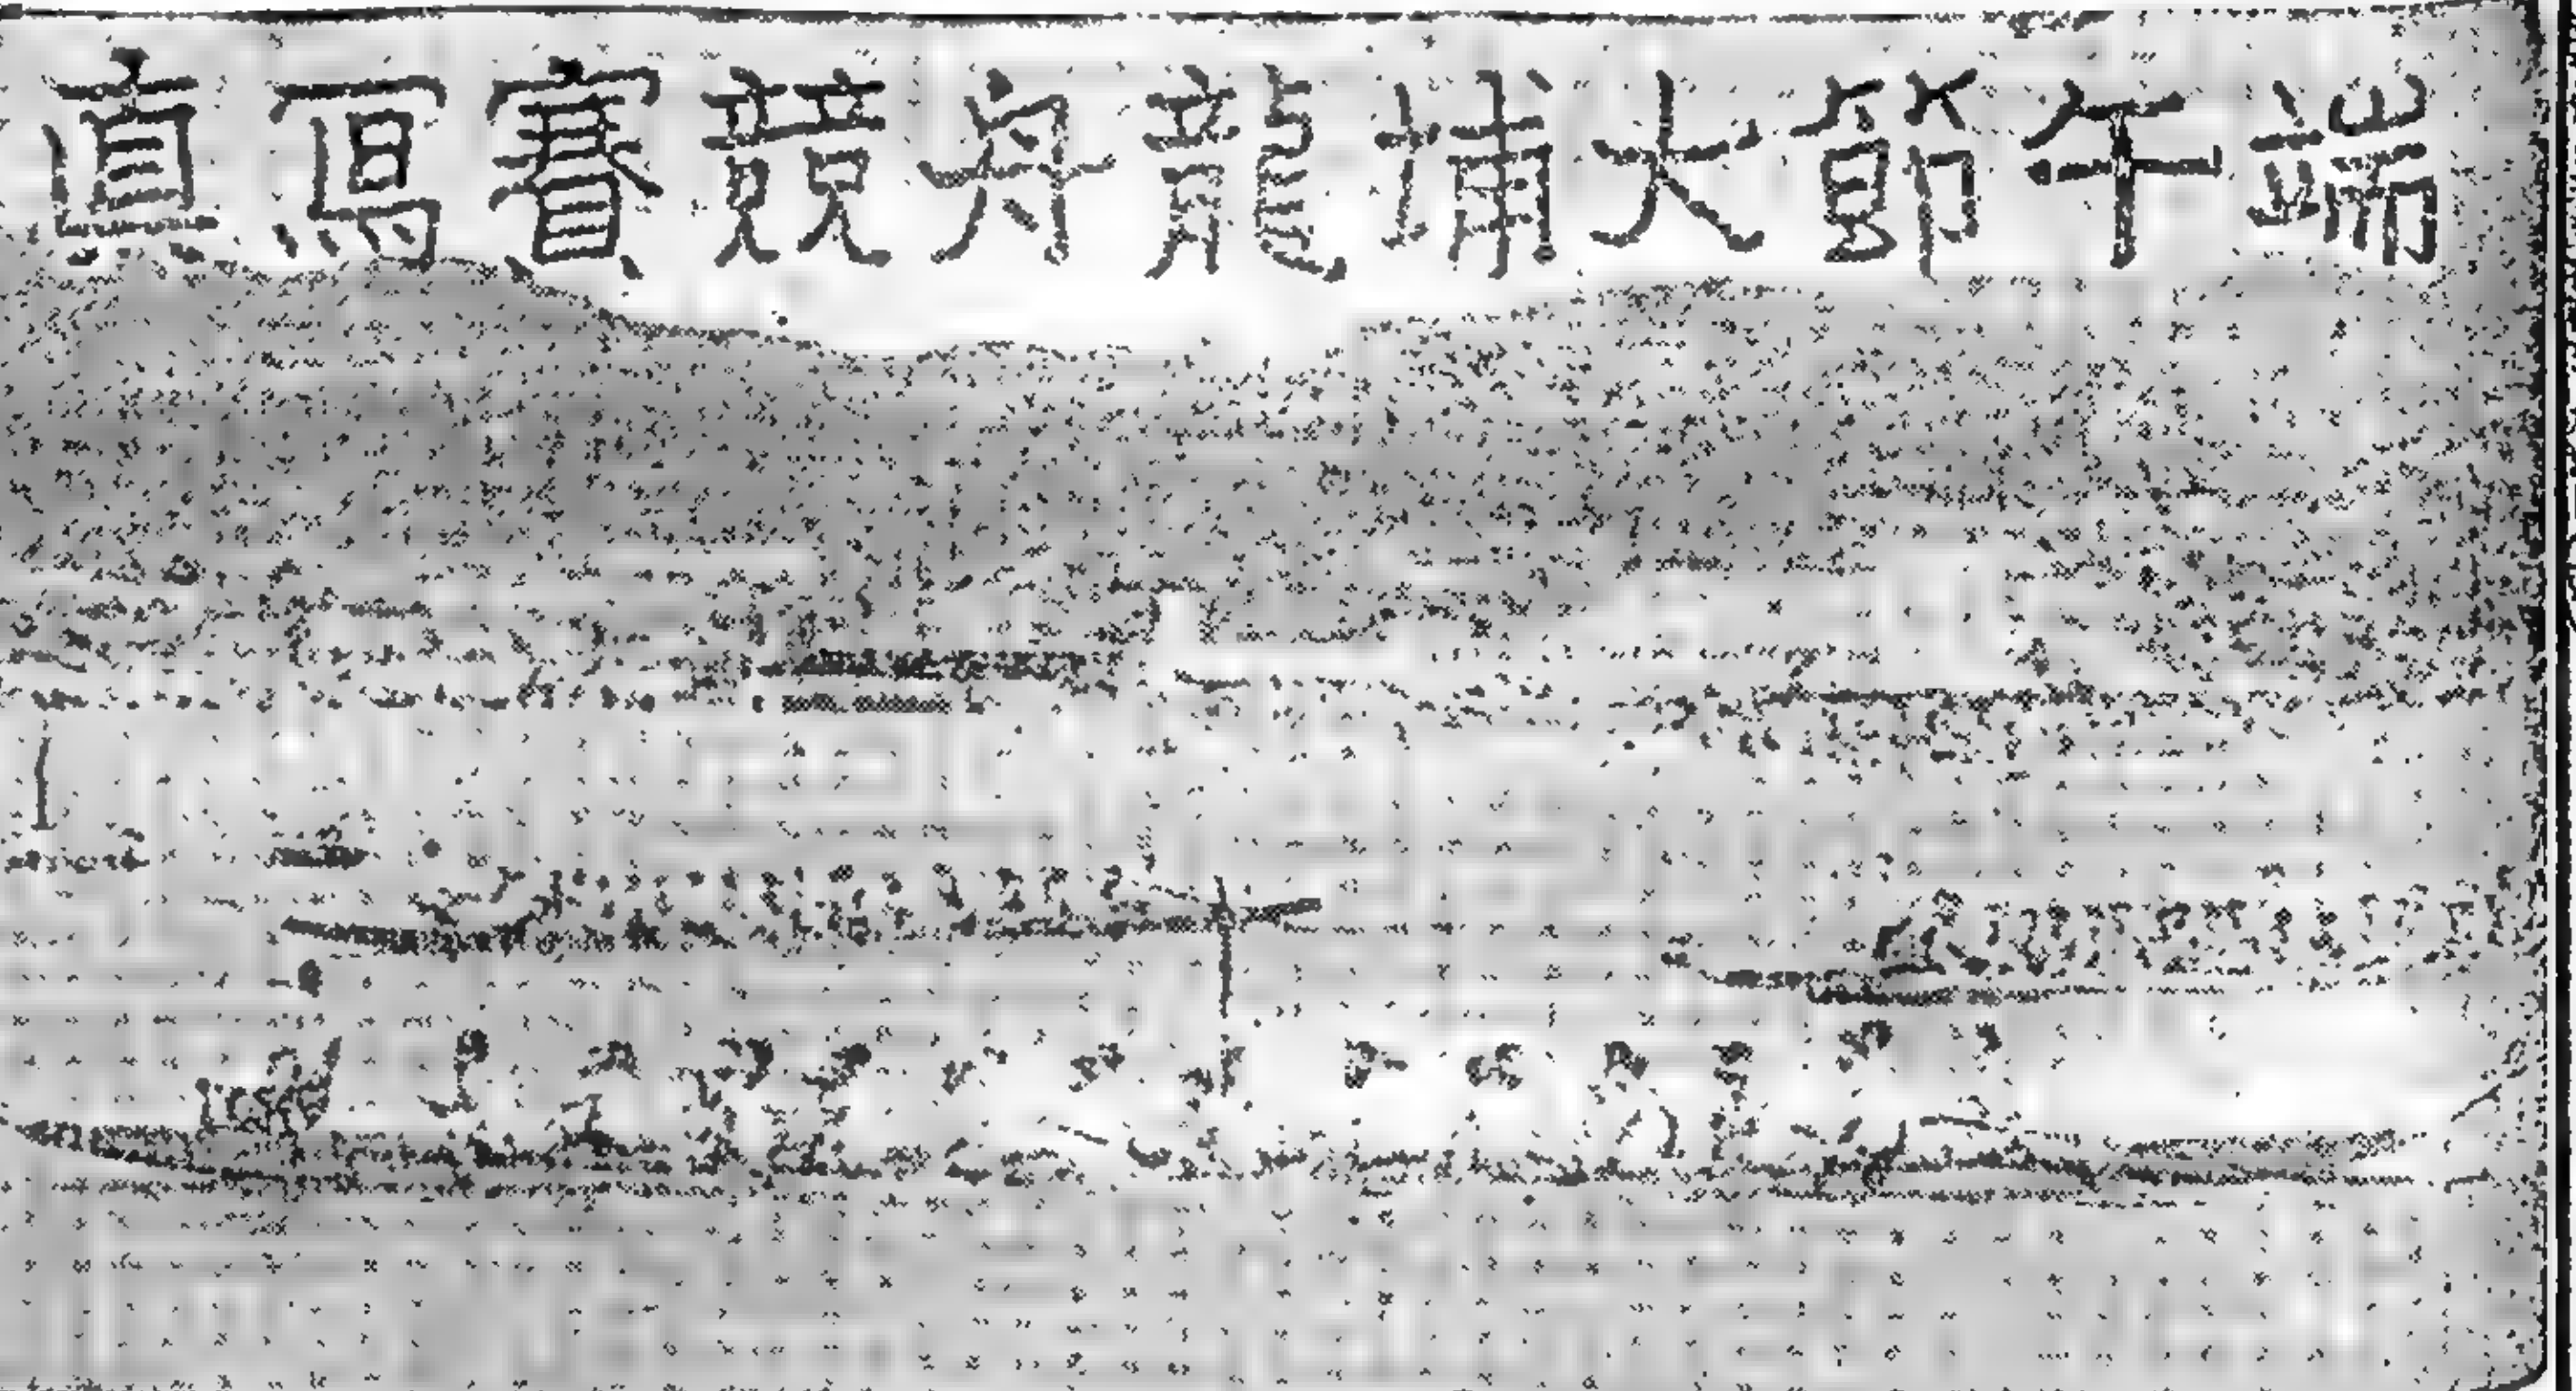 端午節大埔龍舟競賽寫真